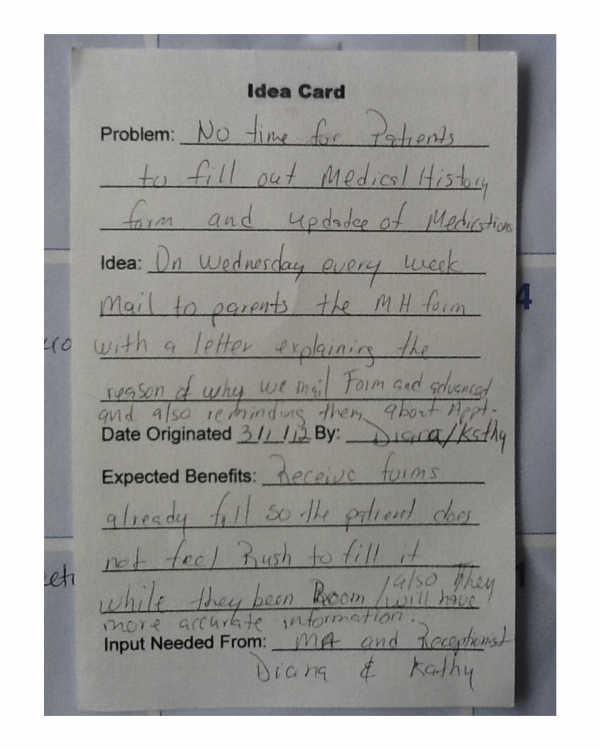 Idea Card
Problem: No time for Patients
to fill out Medical History
form and updates of Medications
Idea: On Wednesday every week
Mail to parents the MH form
with a letter explaining the
reason of why we mail Form and advanced
and also reminding them about Appt.
Date Originated 3/1/12 By: Diana/Kathy
Expected Benefits: Receive forms
already fill so the patient does
not feel Rush to fill it
while they been Room / also They
will have
more accurate information.
Input Needed From: MA and Receptionist
Diana & Kathy
4
1